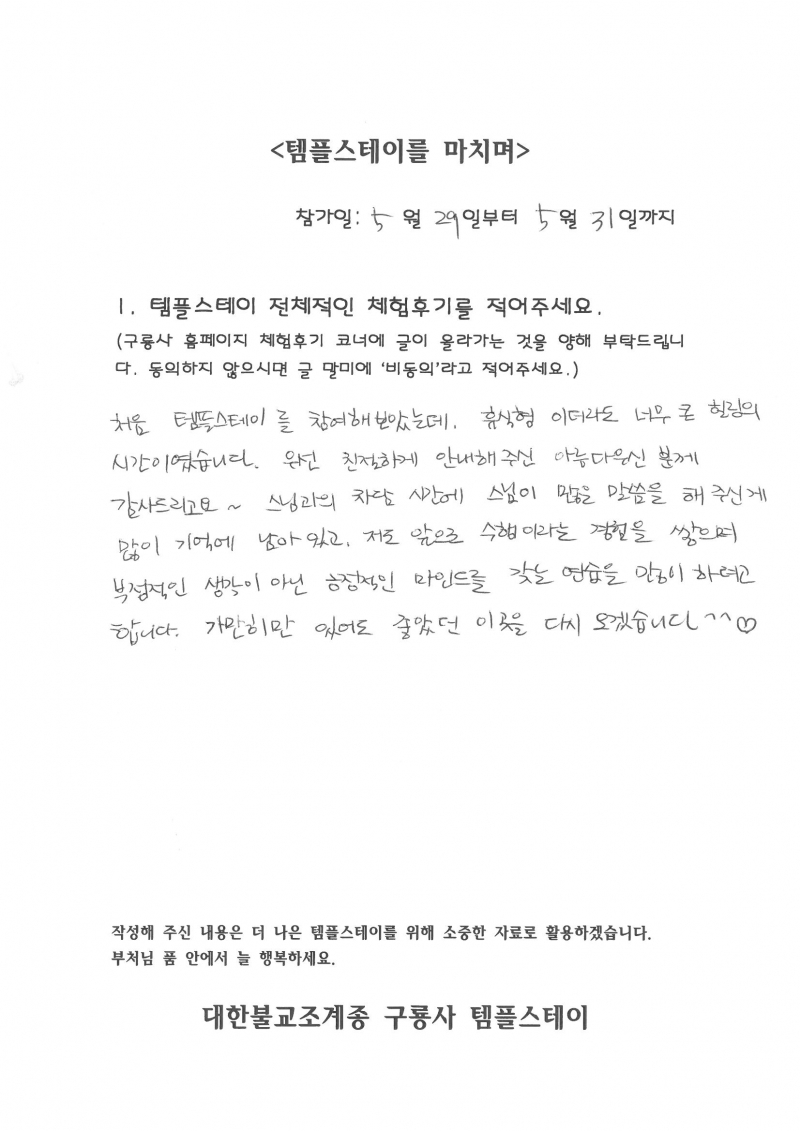 <템플스테이를 마치며>
참가일: 5 월 29일부터 5월 31일까지
1. 템플스테이 전체적인 체험후기를 적어주세요.
(구룡사 홈페이지 체험후기 코너에 글이 올라가는 것을 양해 부탁드립니
다. 동의하지 않으시면 글 말미에 '비동의'라고 적어주세요.)
처음 템플스테이를 참여해보았는데, 휴식형 이더라도 너무 큰 힐링의
시간이였습니다. 우선 친절하게 안내해주신 아름다우신 분께
감사드리고요~ 스님과의 차담 시간에 스님이 많은 말씀을 해 주신게
많이 기억에 남아 있고, 저도 앞으로 수행이라는 경험을 쌓으며
부정적인 생각이 아닌 긍정적인 마인드를 갖는 연습을 많이 하려고
합니다. 가만히만 있어도 좋았던 이곳을 다시 오겠습니다^^♡
작성해 주신 내용은 더 나은 템플스테이를 위해 소중한 자료로 활용하겠습니다.
부처님 품 안에서 늘 행복하세요.
대한불교조계종 구룡사 템플스테이